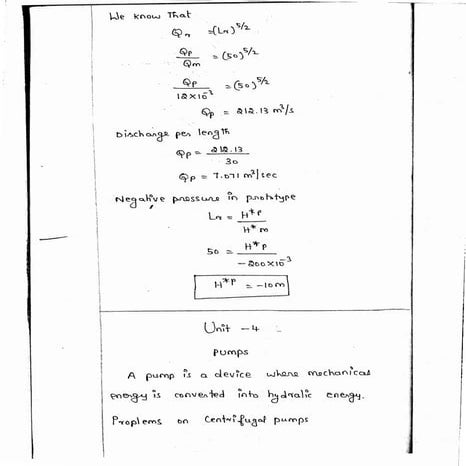 We know That
Qr = (Lr)^5/2
Qp/Qm = (50)^5/2
Qp/12×10^-3 = (50)^5/2
Qp = 212.13 m³/s
Discharge per length
Qp = 212.13/30
Qp = 7.071 m³/sec
Negative pressure in prototype
Lr = H*p/H*m
50 = H*p/-200×10^-3
H*p = -10m
Unit - 4
Pumps
A pump is a device where mechanical
energy is converted into hydralic energy.
Proplems on Centrifugal pumps